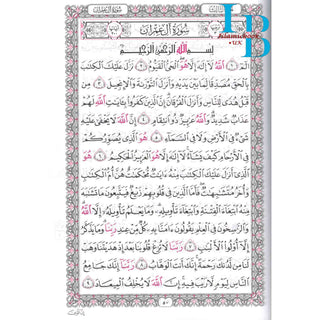 سُورَةُ آلِ عِمْرَانَ
بِسْمِ اللَّهِ الرَّحْمَٰنِ الرَّحِيمِ
الٓمٓ ١ اللَّهُ لَا إِلَٰهَ إِلَّا هُوَ الْحَيُّ الْقَيُّومُ ٢ نَزَّلَ عَلَيْكَ الْكِتَابَ
بِالْحَقِّ مُصَدِّقًا لِّمَا بَيْنَ يَدَيْهِ وَأَنزَلَ التَّوْرَاةَ وَالْإِنجِيلَ ٣ مِن
قَبْلُ هُدًى لِّلنَّاسِ وَأَنزَلَ الْفُرْقَانَ إِنَّ الَّذِينَ كَفَرُوا بِآيَاتِ اللَّهِ لَهُمْ
عَذَابٌ شَدِيدٌ وَاللَّهُ عَزِيزٌ ذُو انتِقَامٍ ٤ إِنَّ اللَّهَ لَا يَخْفَىٰ عَلَيْهِ
شَيْءٌ فِي الْأَرْضِ وَلَا فِي السَّمَاءِ ٥ هُوَ الَّذِي يُصَوِّرُكُمْ
فِي الْأَرْحَامِ كَيْفَ يَشَاءُ لَا إِلَٰهَ إِلَّا هُوَ الْعَزِيزُ الْحَكِيمُ ٦ هُوَ
الَّذِي أَنزَلَ عَلَيْكَ الْكِتَابَ مِنْهُ آيَاتٌ مُّحْكَمَاتٌ هُنَّ أُمُّ الْكِتَابِ
وَأُخَرُ مُتَشَابِهَاتٌ فَأَمَّا الَّذِينَ فِي قُلُوبِهِمْ زَيْغٌ فَيَتَّبِعُونَ مَا تَشَابَهَ
مِنْهُ ابْتِغَاءَ الْفِتْنَةِ وَابْتِغَاءَ تَأْوِيلِهِ وَمَا يَعْلَمُ تَأْوِيلَهُ إِلَّا اللَّهُ
وَالرَّاسِخُونَ فِي الْعِلْمِ يَقُولُونَ آمَنَّا بِهِ كُلٌّ مِّنْ عِندِ رَبِّنَا وَمَا يَذَّكَّرُ
إِلَّا أُولُو الْأَلْبَابِ ٧ رَبَّنَا لَا تُزِغْ قُلُوبَنَا بَعْدَ إِذْ هَدَيْتَنَا وَهَبْ
لَنَا مِن لَّدُنكَ رَحْمَةً إِنَّكَ أَنتَ الْوَهَّابُ ٨ رَبَّنَا إِنَّكَ جَامِعُ
النَّاسِ لِيَوْمٍ لَّا رَيْبَ فِيهِ إِنَّ اللَّهَ لَا يُخْلِفُ الْمِيعَادَ ٩
٥٠